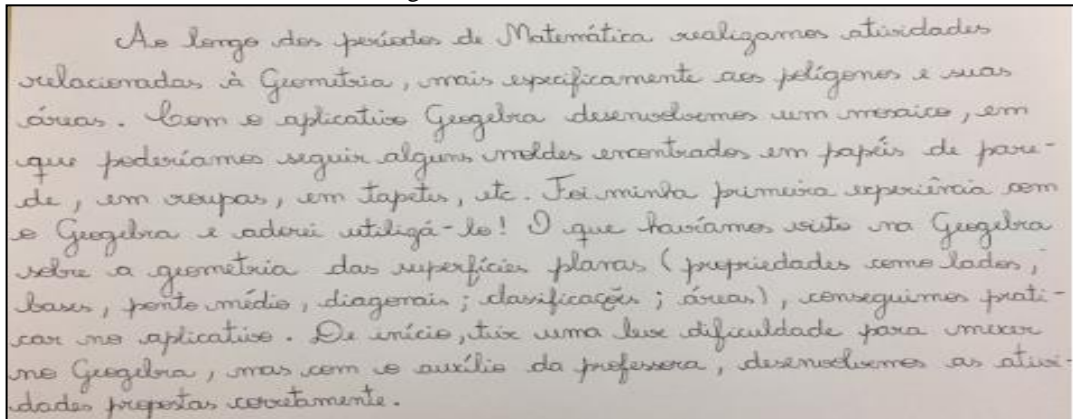 Ao longo dos períodos de Matemática realizamos atividades
relacionadas à Geometria, mais especificamente aos polígonos e suas
áreas. Com o aplicativo Geogebra desenvolvemos um mosaico, em
que poderíamos seguir alguns moldes encontrados em papéis de pare-
de, em roupas, em tapetes, etc. Foi minha primeira experiência com
o Geogebra e adorei utilizá-lo! O que havíamos visto na Geogebra
sobre a geometria das superfícies planas (propriedades como lados,
bases, ponto médio, diagonais; classificações; áreas), conseguimos prati-
car no aplicativo. De início, tive uma leve dificuldade para mexer
no Geogebra, mas com o auxílio da professora, desenvolvemos as ativi-
dades propostas corretamente.